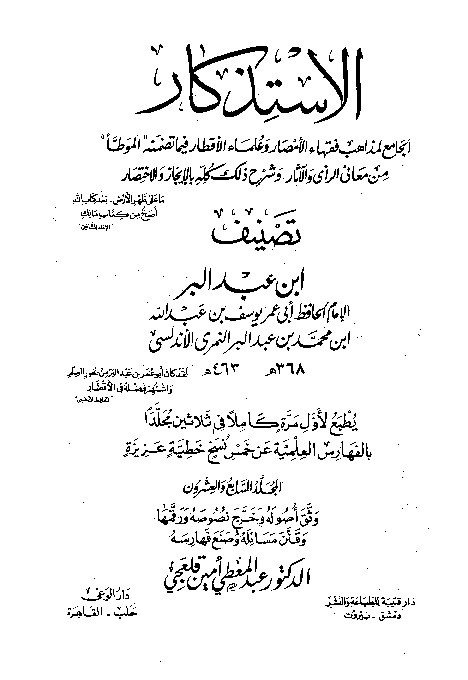 الاستذكار
الجامع لمذاهب فقهاء الأمصار وعلماء الأقطار فيما تضمنه "الموطأ"
من معاني الرأي والآثار، وشرح ذلك كله بالإيجاز والاختصار
ما على ظهر الأرض - بعد كتاب الله
أصح من كتاب مالك
تصنيف
ابن عبد البر
الإمام الحافظ أبي عمر يوسف بن عبد الله
ابن محمد بن عبد البر النمري الأندلسي
٣٦٨ھ ٤٦٣ھ
لقد كان أبو عمر بن عبد البر من بحور العلم
واشتهر فضله في الأقطار
يُطبع لأول مرة كاملا في ثلاثين مجلدًا
بالفهارس العلمية عن خمس نسخ خطية عزيزة
المجلد السابع والعشرون
وثق أصوله وخرج نصوصه ورقمها
وقنن مسائله وصنع فهارسه
الدكتور عبد المعطي أمين قلعجي
دار قتيبة للطباعة والنشر
دمشق - بيروت
دار الوعي
حلب - القاهرة